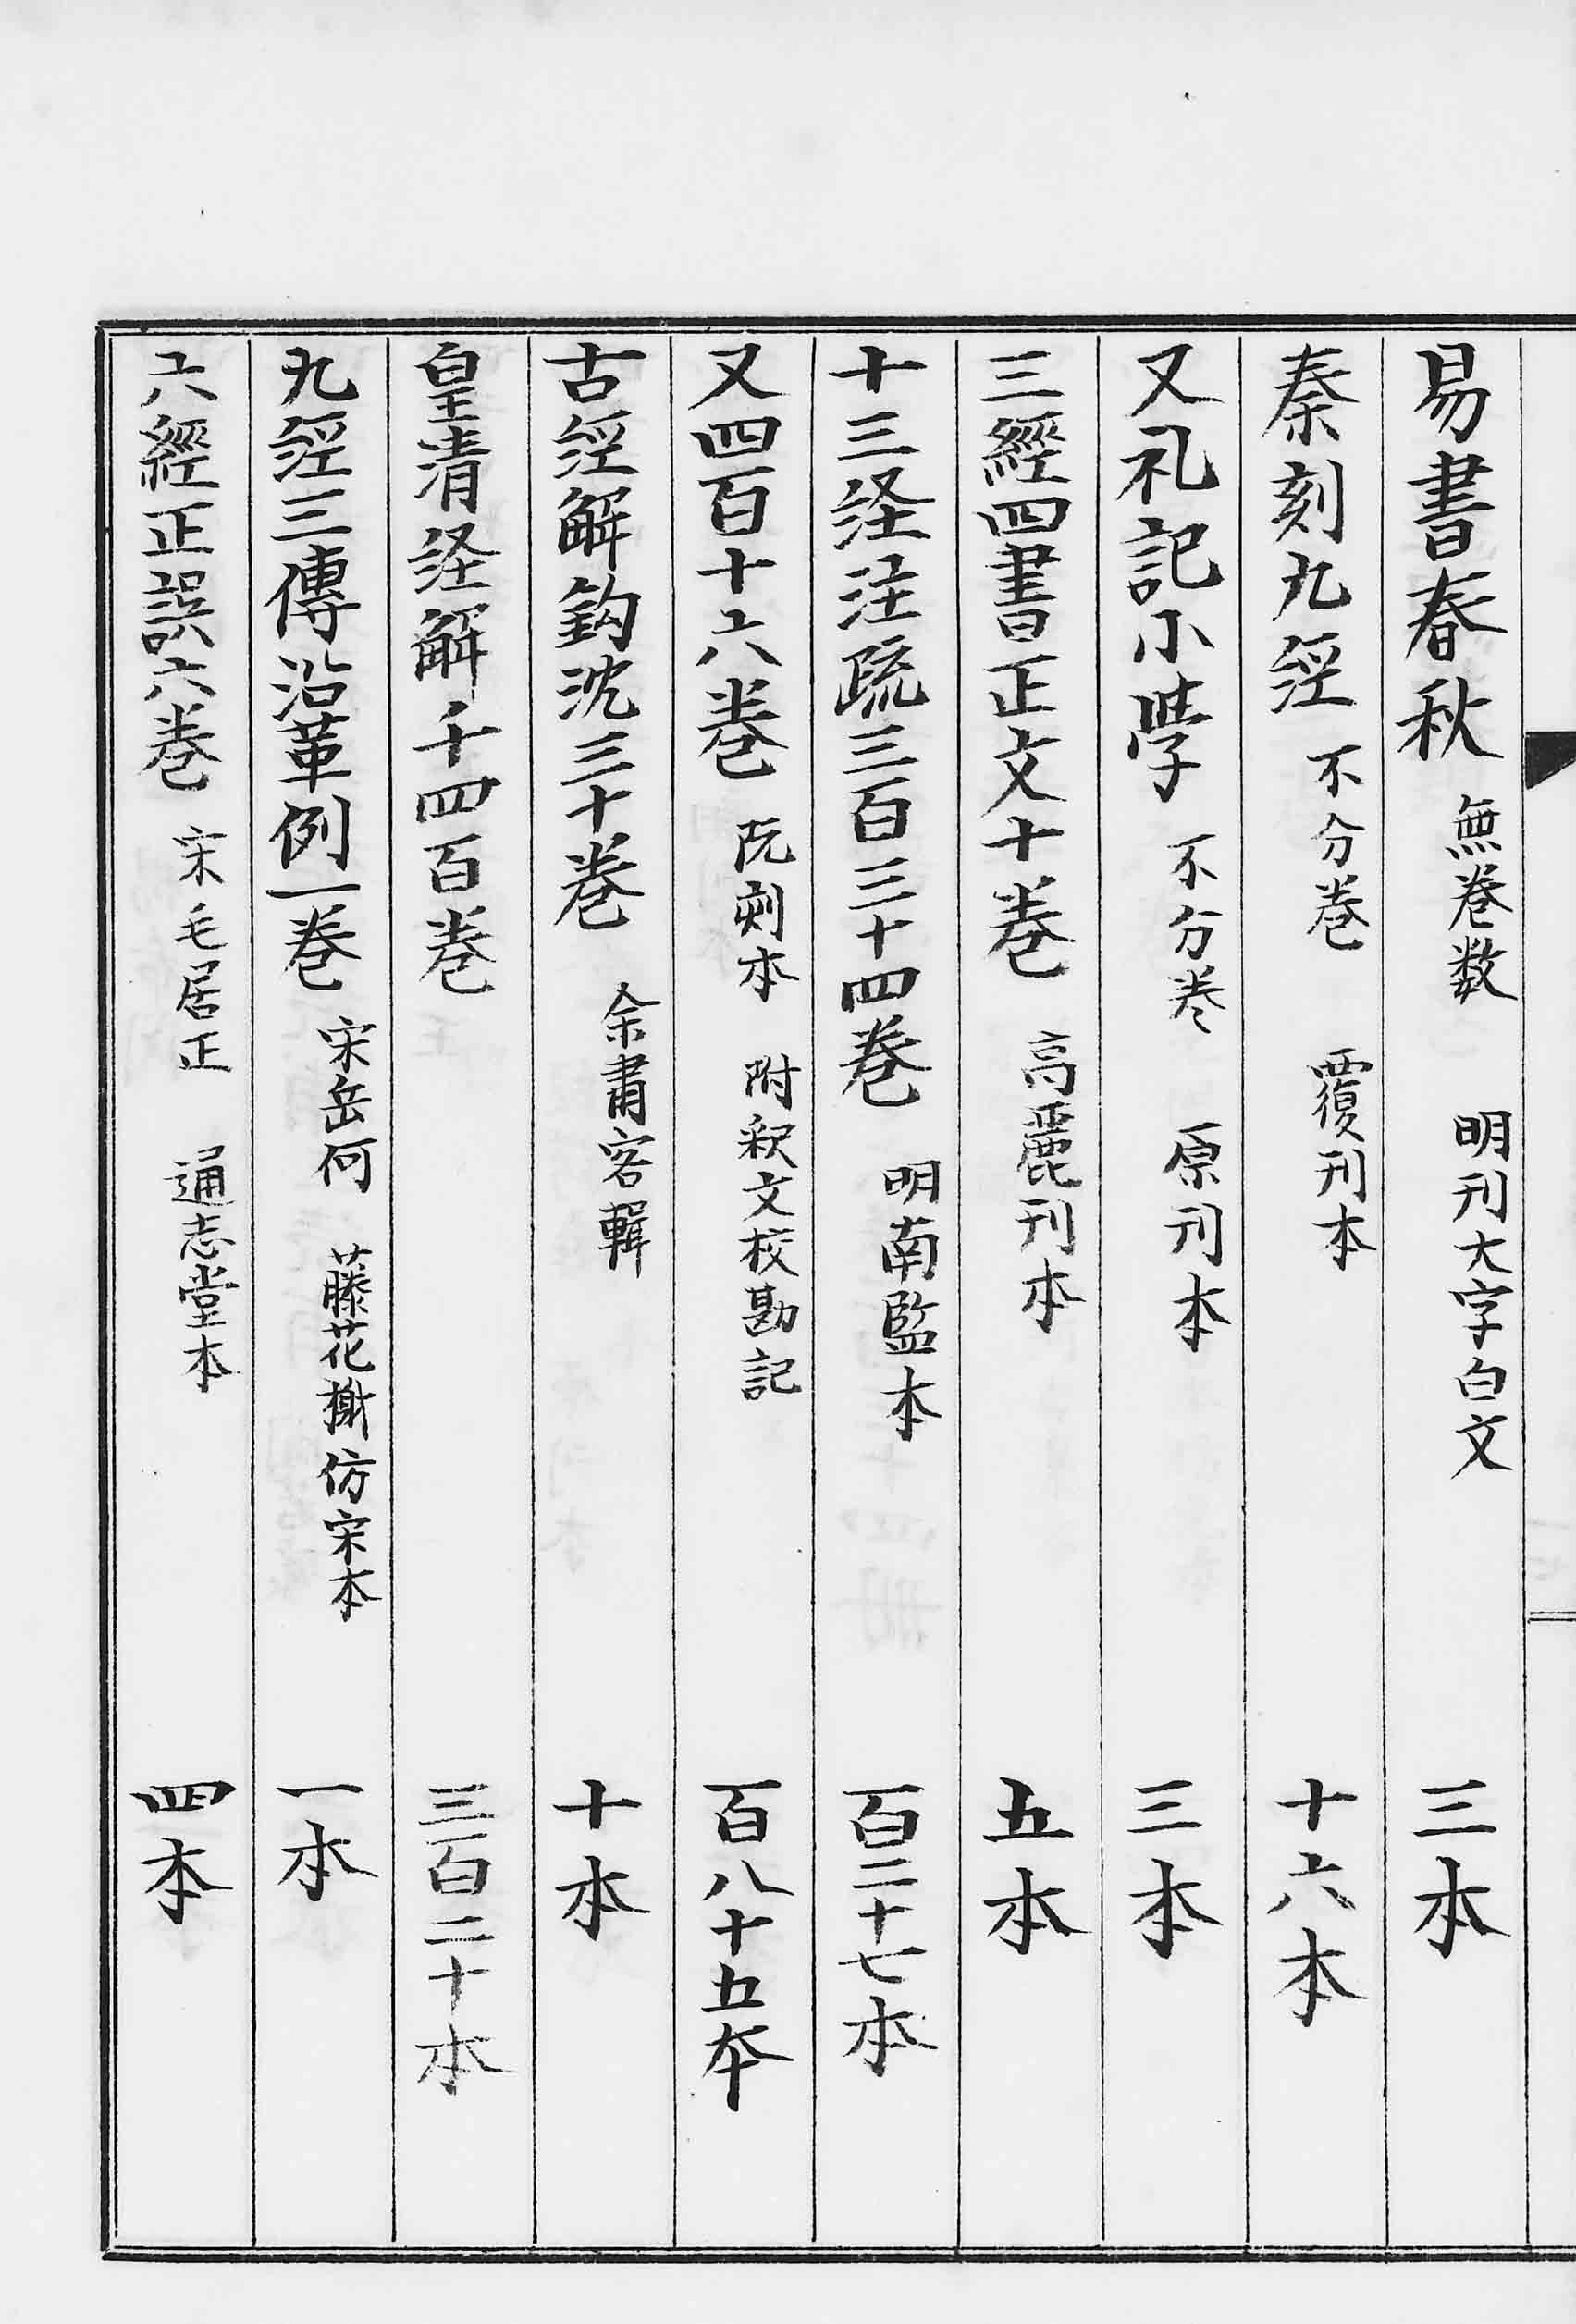 易書春秋 無巻数 明刊大字白文 三本
秦刻九経 不分巻 覆刊本 十六本
又礼記小學 不分巻 原刊本 三本
三經四書正文十巻 高麗刊本 五本
十三经注疏三百三十四巻 明南監本 百二十七本
又四百十六巻 阮刻本 附釈文校勘記 百八十五本
古経解鈎沈三十巻 余肅客輯 十本
皇清经解千四百巻 三百二十本
九経三傳沿革例一巻 宋岳何 藤花榭仿宋本 一本
六經正誤六巻 宋毛居正 通志堂本 四本